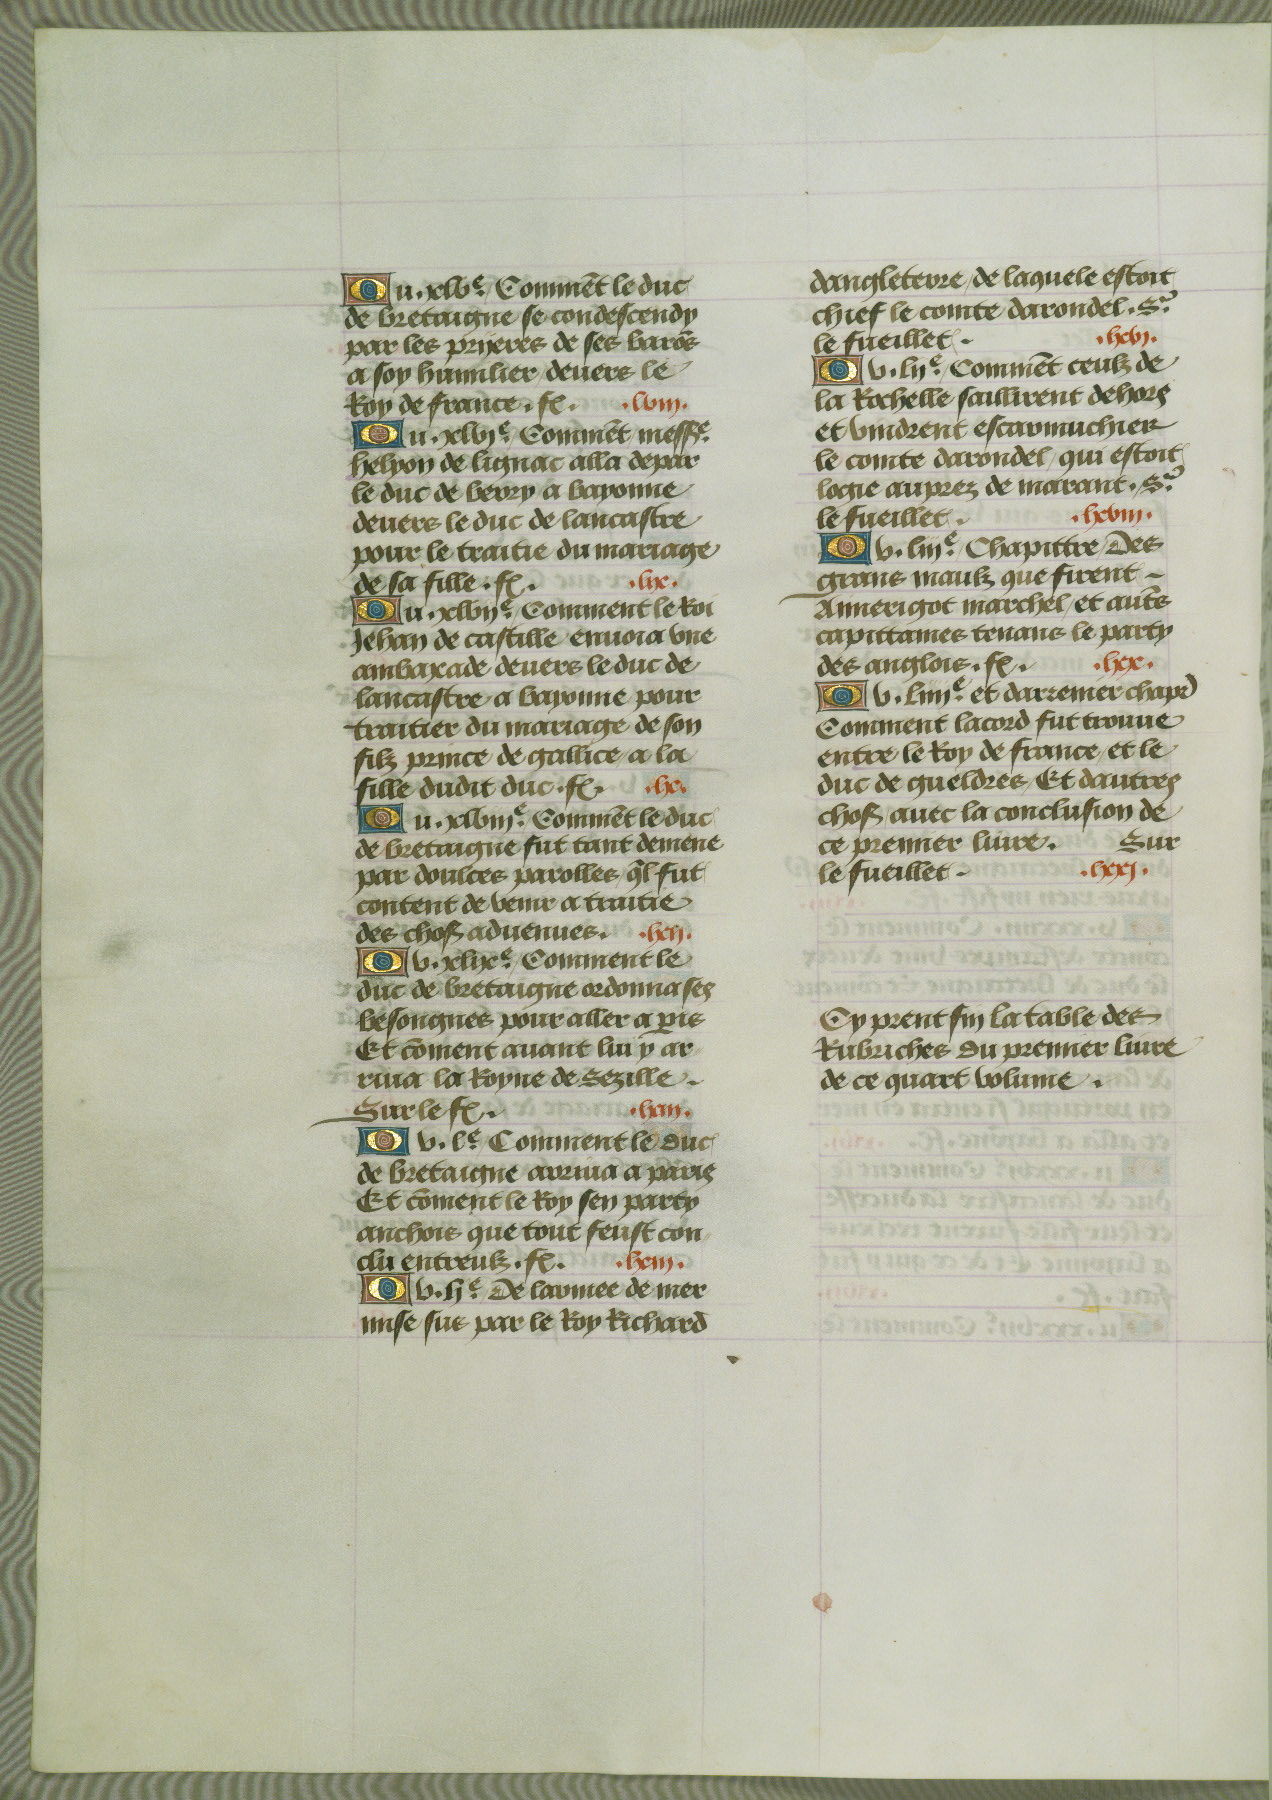 Du .xlve. Comme͂t le duc
de bretaigne se condescendy
par les prijeres de ses baro͂s
a soy humilier / deuers le
Roy de france . fe. .lviii.
Du .xlvie. Comme͂t messe.
helyon de lignac alla depar
le duc de berry a bayonne
deuers le duc de lancastre
pour le traitie du mariage
de sa fille . fe. .lix.
Du .xlviie. Comment le Roi
Jehan de castille enuoia vne
ambaxade deuers le duc de
lancastre a bayonne pour
traitier du mariage de son
filz prince de gallice / a la
fille dudit duc . fe. .lx.
Du .xlviiie. Comme͂t le duc
de bretaigne fut tant demene
par doulces parolles / ql̃ fut
content de venir a traitie
des choses aduenues. .lxii.
Dv .xlixe. Comment le
duc de bretaigne ordonna ses
besongnes pour aller a p̲is
Et co͂ment auant lui y ar-
riua la Royne de Sezille .
Sur le fe. .lxiii.
Dv .le. Comment le duc
de bretaigne arriua a paris
Et co͂ment le Roy sen party
anchois que tout feust con-
clu entreulz . fe. .lxiiii.
Dv .lie. De larmee de mer
mise sus par le Roy Richard
dangleterre / de laquele estoit
chief le comte darondel . Sr.
le fueillet . .lxvi.
Dv .liie. Comme͂t ceulz de
la Rochelle saillirent dehors
et vindrent escarmuchier
le comte darondel / qui estoit
logie auprez de marant . Sr.
le fueillet . .lxviii.
Dv .liiie. Chapittre / Des
grans maulz que firent -
Aimerigot marchel / et aut̃s
capittaines tenans le party
des anglois . fe. .lxx.
Dv .liiiie. et darrenier chapr̃
Comment lacord fut trouue
entre le Roy de france / et le
duc de gueldres / Et dautres
choses / auec la conclusion de
ce premier liure . Sur
le fueillet . .lxxi.
Cy prent fin la table des
Rubriches du premier liure
de ce quart volume .